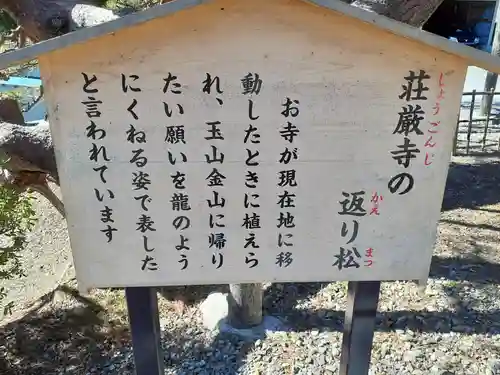 荘厳寺の
しょうごんじ
返り松
かえ
まつ
お寺が現在地に移
動したときに植えら
れ、玉山金山に帰り
たい願いを龍のよう
にくねる姿で表した
と言われています